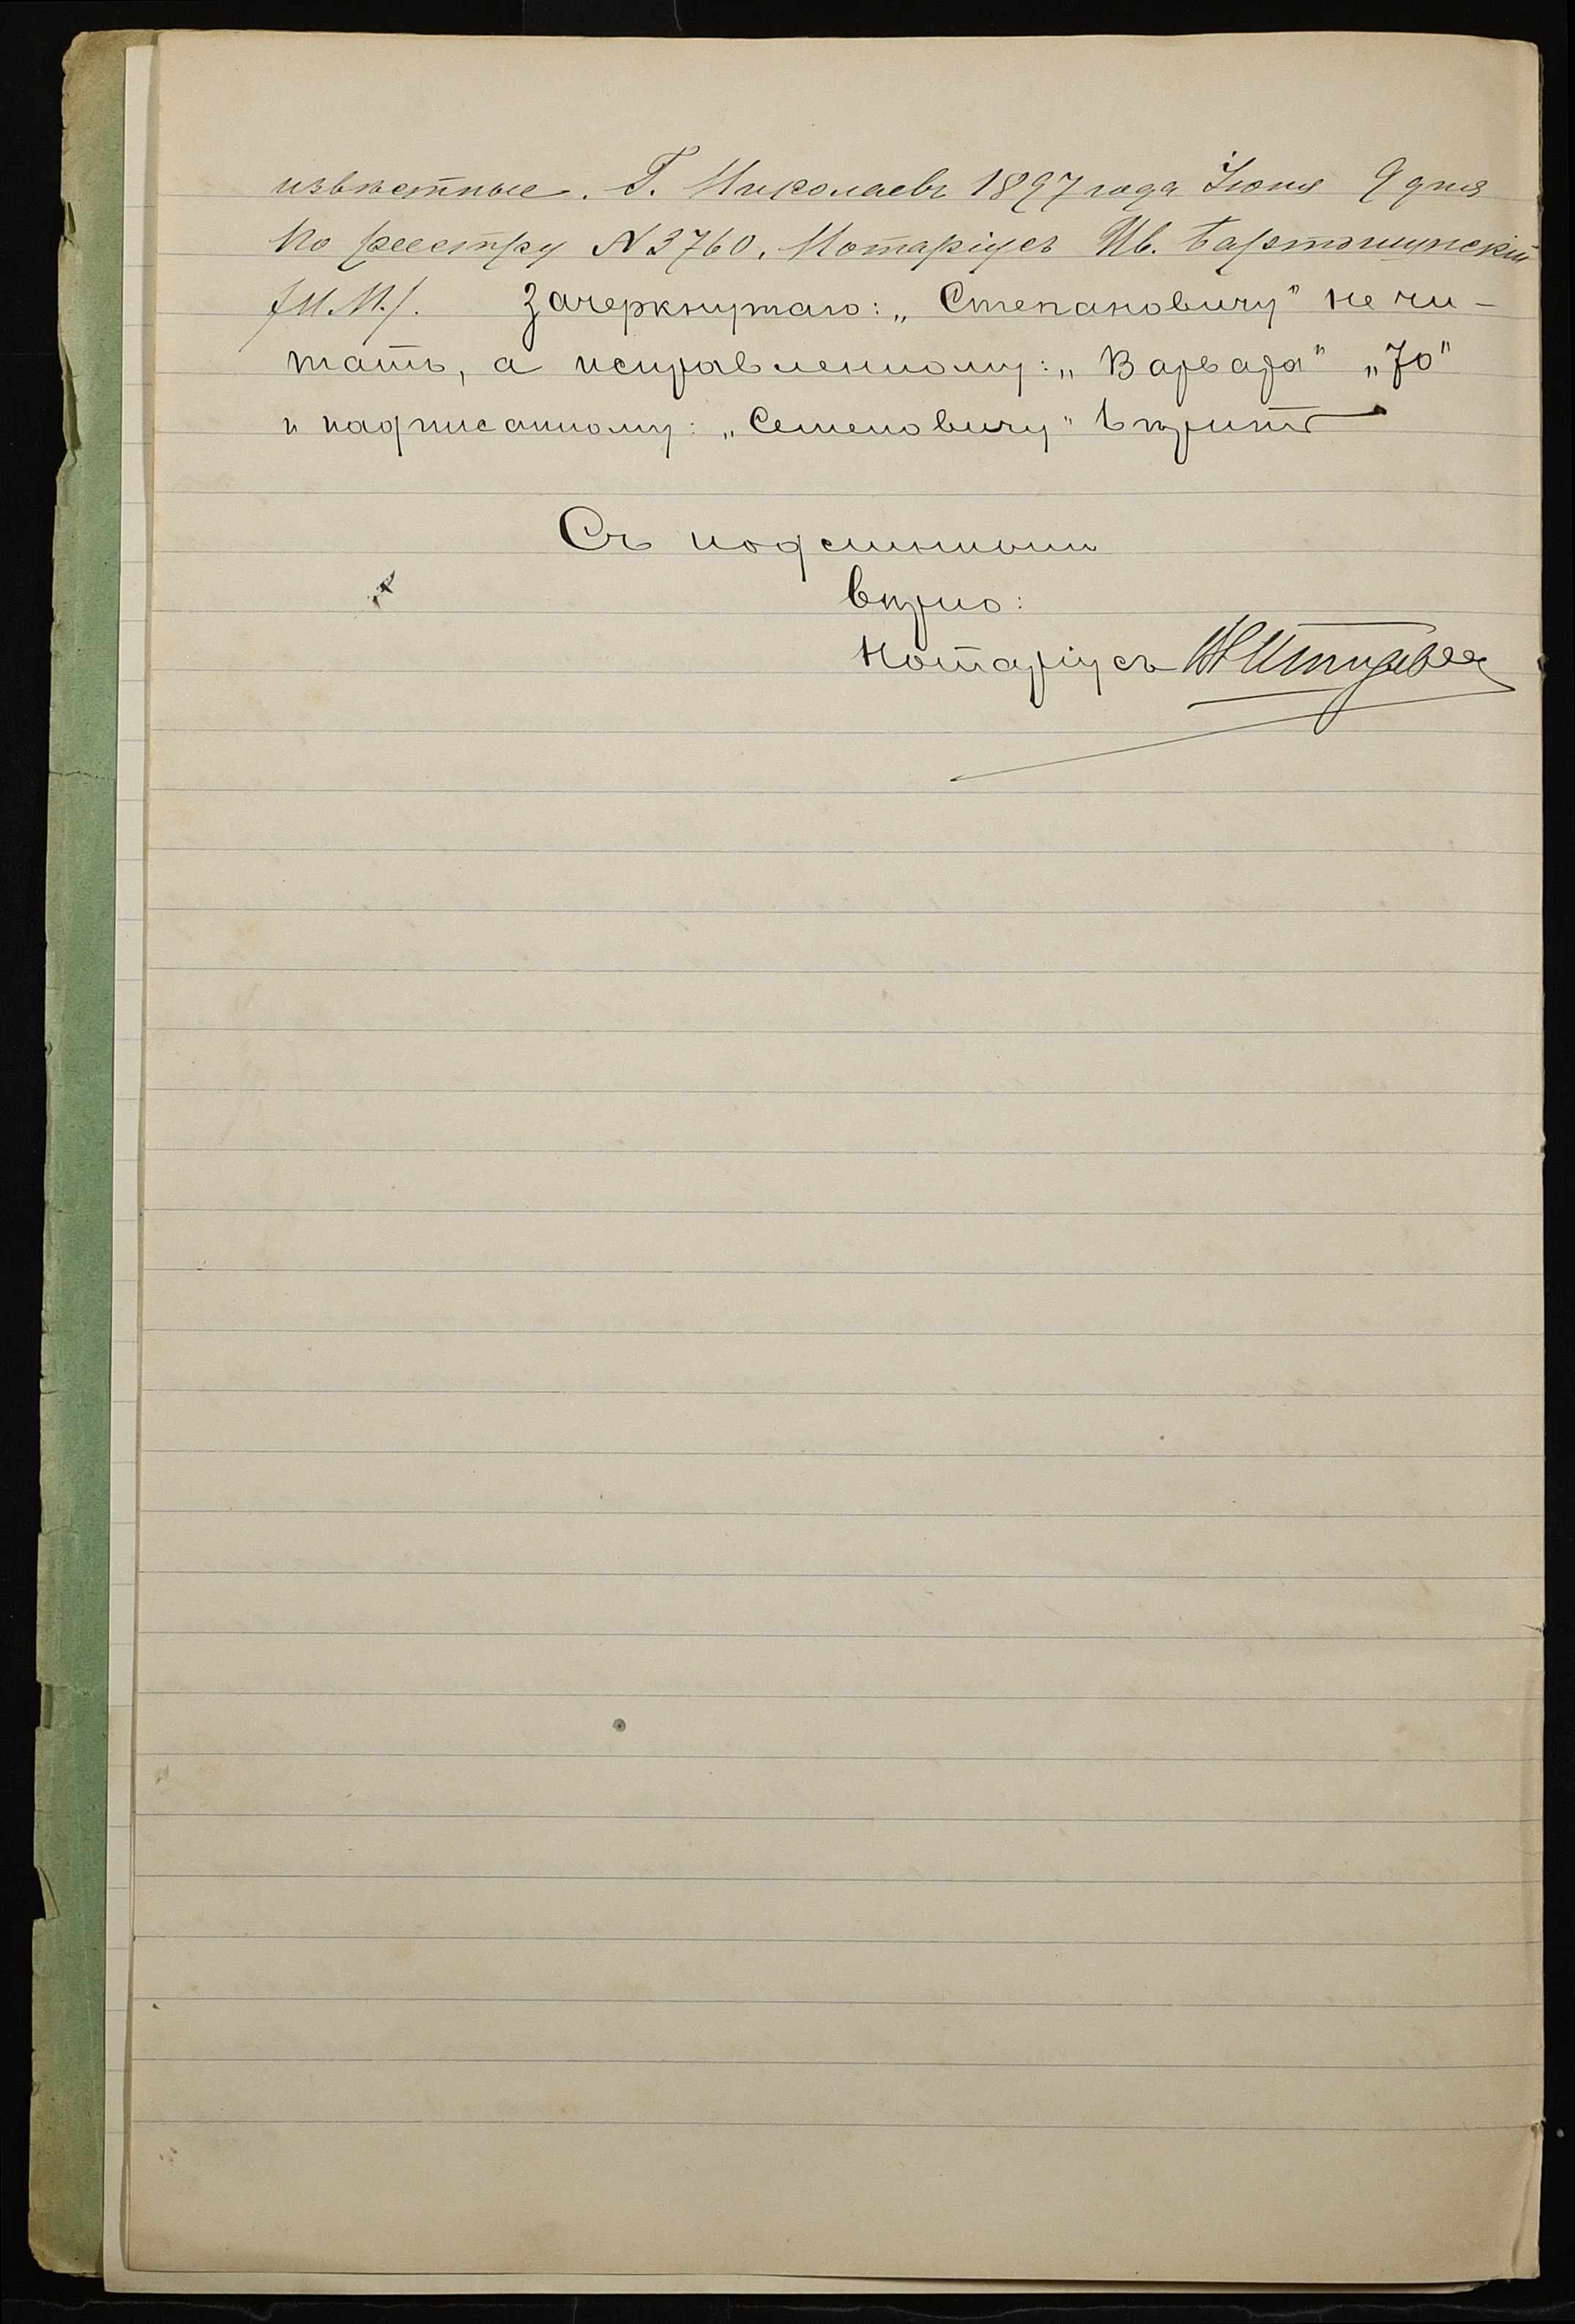 извѣстные. Г. Николаевъ 1897 года Іюня 9 дня
По реестру N 3760. Нотаріусъ Ив. Бартошинскій
/М.П./. Зачеркнутаго: „Степановичу" не чи-
тать, а исправленному: „Варвара" „70"
и надписанному: „Семеновичу" вѣрить
Съ подлиннымъ
вѣрно:
Нотаріусъ